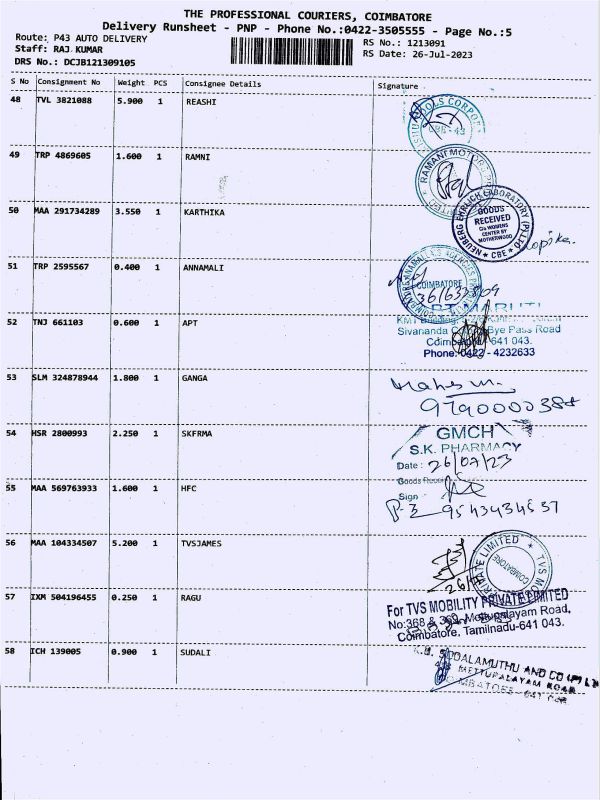 THE PROFESSIONAL COURIERS, COIMBATORE
Delivery Runsheet - PNP - Phone No.:0422-3505555 - Page No.:5
Route: P43 AUTO DELIVERY
RS No.: 1213091
Staff: RAJ KUMAR
RS Date: 26-Jul-2023
DRS No.: DCJB121309105
S No Consignment No Weight PCS Consignee Details Signature
48 TVL 3821088 5.900 1 REASHI
CBE-43
49 TRP 4869605 1.600 1 RAMNI
RAMANI MOTORS
50 MAA 291734289 3.550 1 KARTHIKA
NEUBERG EHRLICH LABORATORY (P) LTD
GOODS
RECEIVED
C/o WOMENS
CENTER BY
MOTHERHOOD
CBE
51 TRP 2595567 0.400 1 ANNAMALI
COIMBATORE
52 TNJ 661103 0.600 1 APT
MARUTI
Sivananda Bye Pass Road
641 043.
Phone: 0422 - 4232633
53 SLM 324878944 1.800 1 GANGA
54 HSR 2800993 2.250 1 SKFRMA
GMCH
S.K. PHARMACY
Date: 26/07/23
Goods
Sign
55 MAA 569763933 1.600 1 HFC
9543434537
56 MAA 104334507 5.200 1 TVSJAMES
PRIVATE LIMITED
TVS
COIMBATORE
57 IXM 504196455 0.250 1 RAGU
For TVS MOBILITY PRIVATE LIMITED
No:368 & 369, Mettupalayam Road,
Coimbatore, Tamilnadu-641 043.
58 ICH 139005 0.900 1 SUDALI
AND CO (P) LTD
METTUPALAYAM ROAD